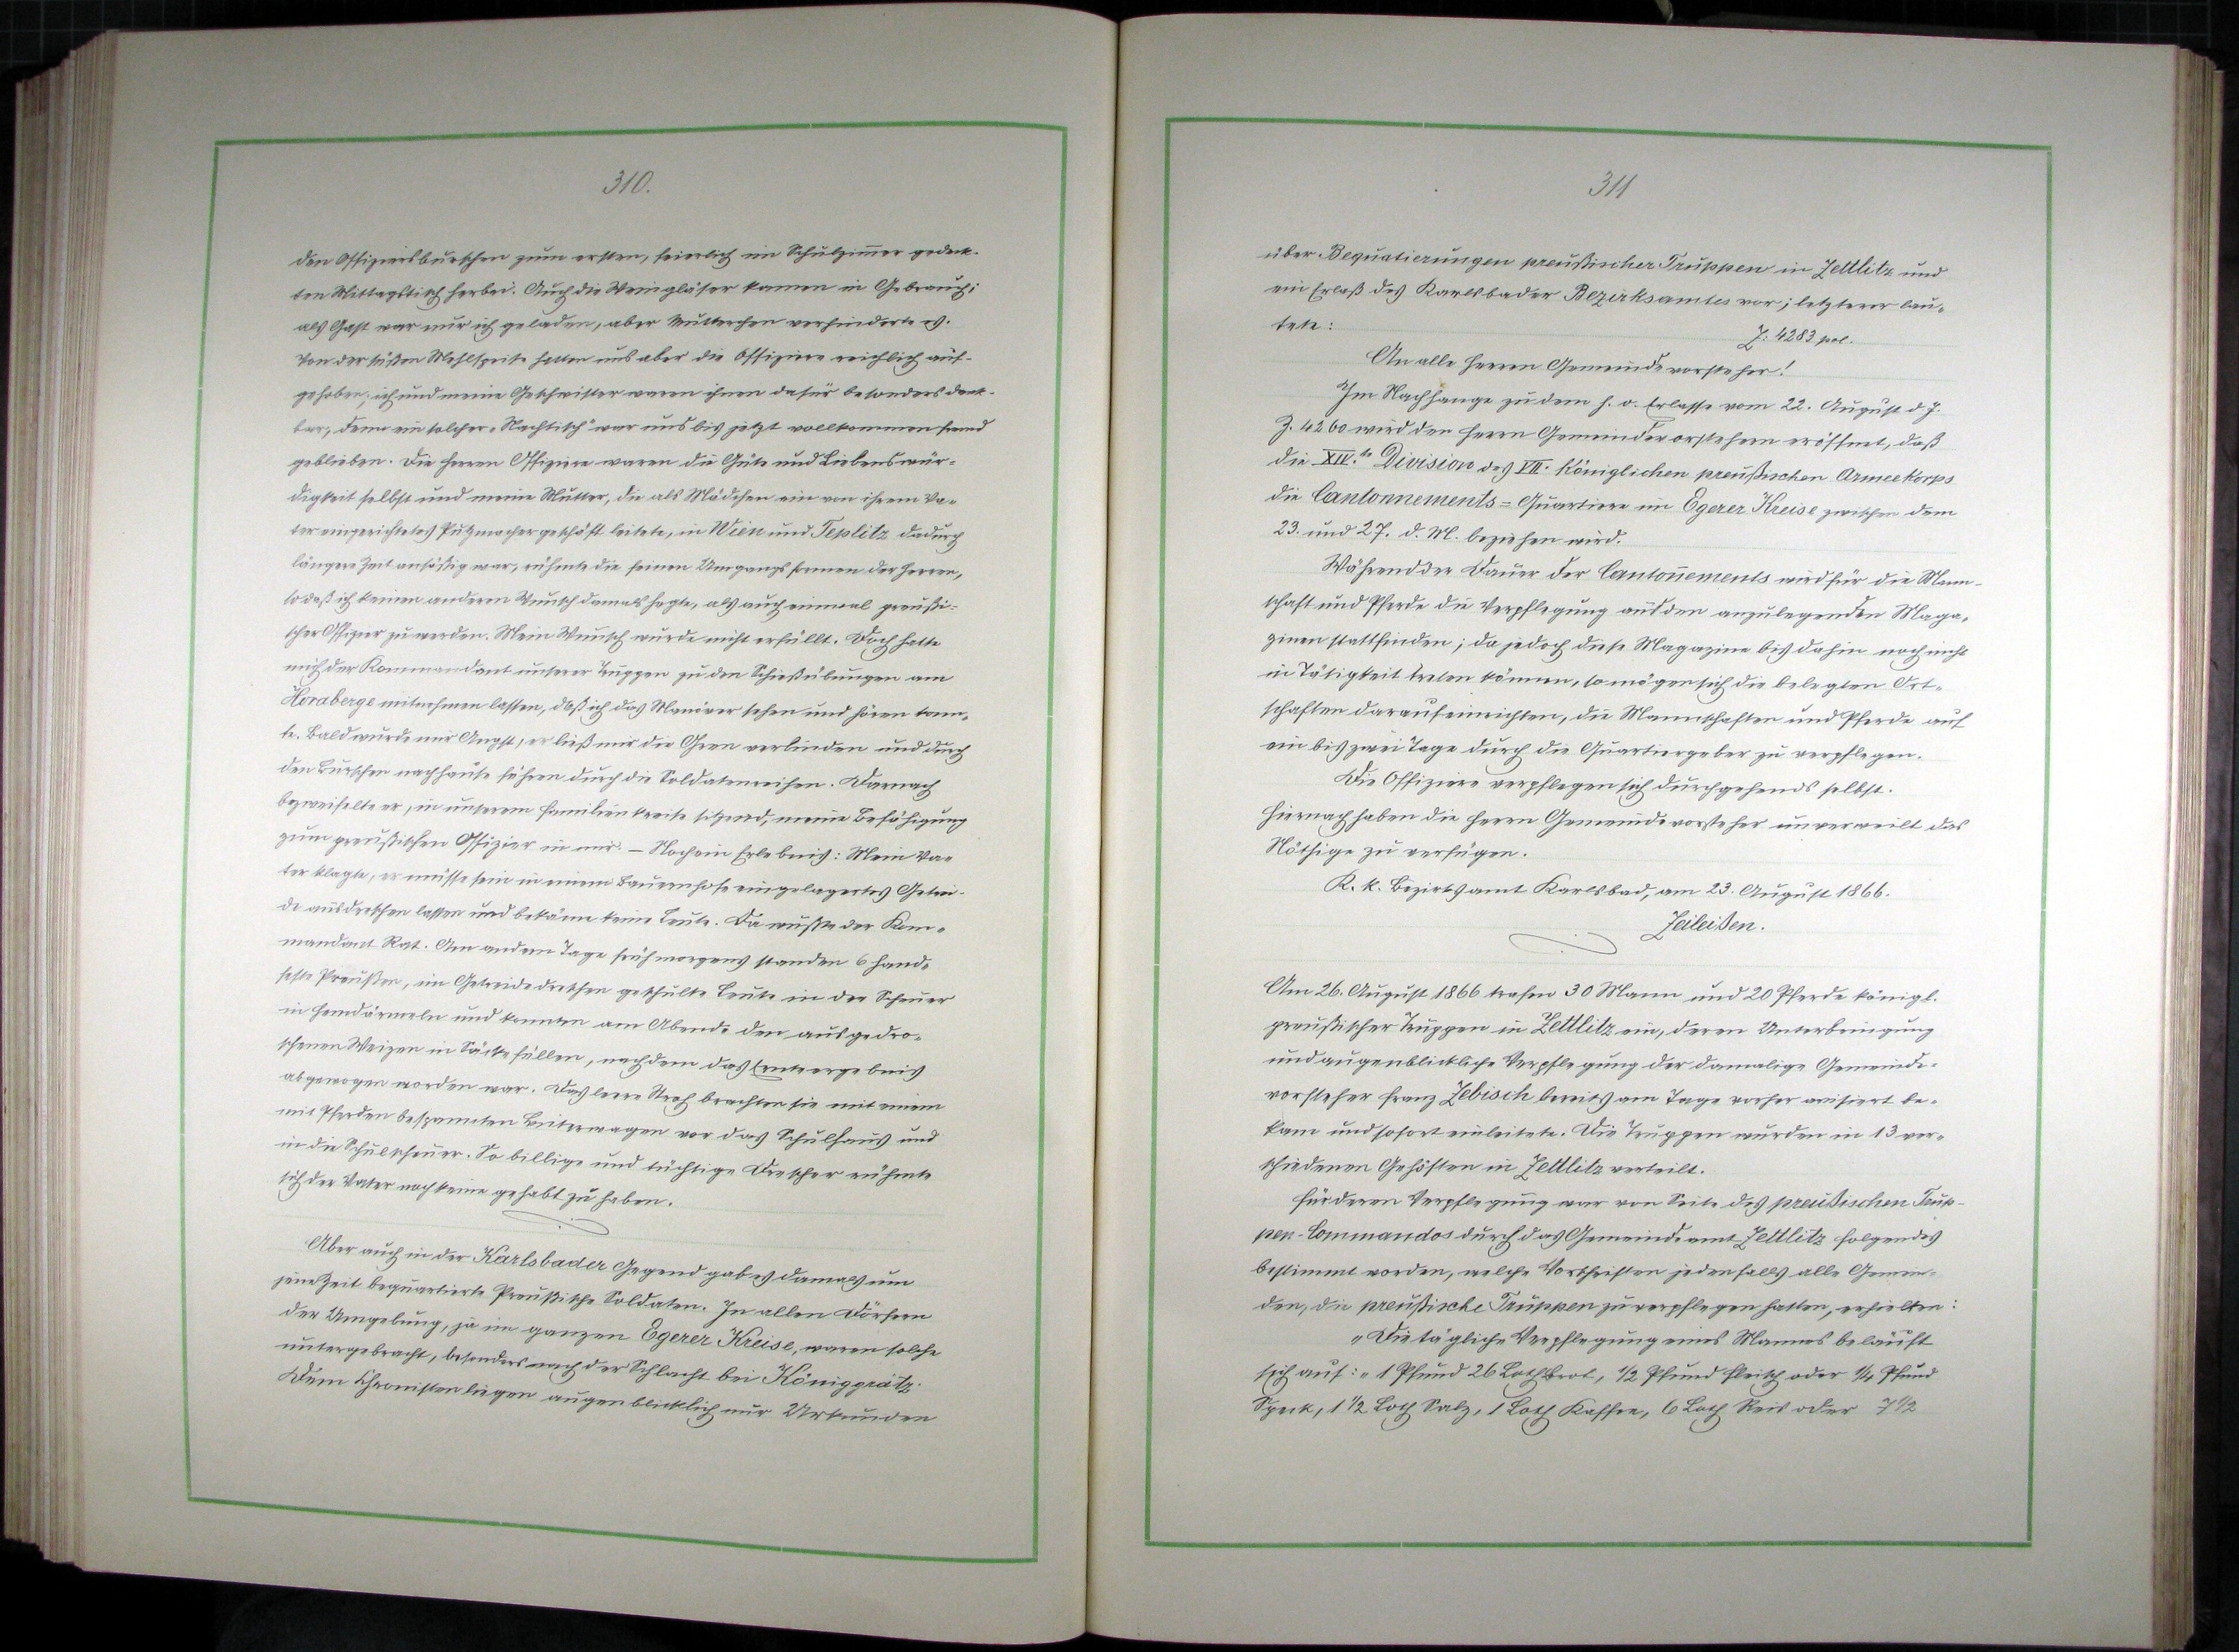 310.
den Offiziersburschen zum ersten, feierlich im Schulzimmer gedeck-
ten Mittagstisch herbei. Auch die Weingläser kamen in Gebrauch;
als Gast war nur ich geladen, aber Mütterchen verhinderte es.
Von der süßen Mehlspeise hatten uns aber die Offiziere reichlich auf-
gehoben; ich und meine Geschwister waren ihnen dafür besonders dank-
bar, denn ein solcher „Nachtisch" war uns bis jetzt vollkommen fremd
geblieben. Die Herren Offiziere waren die Güte und Liebenswür-
digkeit selbst und meine Mutter, die als Mädchen ein von ihrem Va-
ter eingerichtetes Putzmachergeschäft leitete, in Wien und Teplitz dadurch
längere Zeit ansäßig war, rühmte die feinen Umgangsformen der Herren,
so daß ich keinen anderen Wunsch damals hegte, als auch einmal preußi-
scher Offizier zu werden. Mein Wunsch wurde nicht erfüllt. Doch hatte
mich der Kommandant unserer Truppen zu den Schießübungen am
Horaberge mitnehmen lassen, daß ich das Manöver sehen und hören konn-
te. Bald wurde mir Angst, er ließ mir die Ohren verbinden und durch
den Burschen nachhause führen durch die Soldatenreihen. Darnach
bezweifelte er, in unserem Familienkreise sitzend, meine Befähigung
zum preußischen Offizier in mir. — Noch ein Erlebnis: Mein Va-
ter klagte, er müsse sein in einem Bauernhofe eingelagertes Getrei-
de ausdreschen lassen und bekäme keine Leute. Da wußte der Kom-
mandant Rat. Am andern Tage frühmorgens standen 6 hand-
feste Preußen, im Getreidedreschen geschulte Leute in der Scheuer
in Hemdärmeln und konnten am Abende den ausgedro-
schenen Weizen in Säcke füllen, nachdem das Ernteergebnis
abgewogen worden war. Das leere Stroh brachten sie mit einem
mit Pferden bespannten Leiterwagen vor das Schulhaus und
in die Schulscheuer. So billige und tüchtige Drescher rühmte
sich der Vater noch keine gehabt zu haben.
Aber auch in der Karlsbader Gegend gab es damals um
jene Zeit bequartierte Preußische Soldaten. In allen Dörfern
der Umgebung, ja im ganzen Egerer Kreise, waren solche
untergebracht, besonders nach der Schlacht bei Königgrätz.
Dem Chronisten liegen augenblicklich nur Urkunden
311
über Bequatierungen preußischer Truppen in Zettlitz und
ein Erlaß des Karlsbader Bezirksamtes vor; letzterer lau-
tete:
Z: 4283 pol.
An alle Herren Gemeindevorsteher!
Im Nachhange zu dem h. o. Erlasse vom 22. August d. J.
Z. 4260 wird den Herrn Gemeindevorstehern eröffnet, daß
die XIV.te Division des VII. Königlichen preußischen Armeekorps
die Cantonnements = Quartiere im Egerer Kreise zwischen dem
23. und 27. d. M. beziehen wird.
Während der Dauer der Cantonnements wird für die Mann-
schaft und Pferde die Verpflegung aus den anzulegenden Maga-
zinen stattfinden; da jedoch diese Magazine bis dahin noch nicht
in Tätigkeit treten können, so mögen sich die belegten Ort-
schaften darauf einrichten, die Mannschaften und Pferde auf
ein bis zwei Tage durch die Quartiergeber zu verpflegen.
Die Offiziere verpflegen sich durchgehends selbst.
Hiernach haben die Herrn Gemeindevorsteher unverweilt das
Nöthige zu verfügen.
K. k. Bezirksamt Karlsbad, am 23. August 1866.
Zeileißen.
Am 26. August 1866 trafen 30 Mann und 20 Pferde königl.
preußischer Truppen in Zettlitz ein, deren Unterbringung
und augenblickliche Verpflegung der damalige Gemeinde-
vorsteher Franz Zebisch bereits am Tage vorher avisiert be-
kam und sofort einleitete. Die Truppen wurden in 13 ver-
schiedenen Gehöften in Zettlitz verteilt.
Für deren Verpflegung war von Seite des preußischen Trup-
pen-Commandos durch das Gemeindeamt Zettlitz folgendes
bestimmt worden, welche Vorschriften jedenfalls alle Gemein-
den, die preußische Truppen zu verpflegen hatten, erhielten:
„Die tägliche Verpflegung eines Mannes beläuft
sich auf: „1 Pfund 26 Loth Brot, 1/2 Pfund Fleisch oder 1/4 Pfund
Speck, 1 1/2 Loth Salz, 1 Loth Kaffee, 6 Loth Reis oder 7 1/2